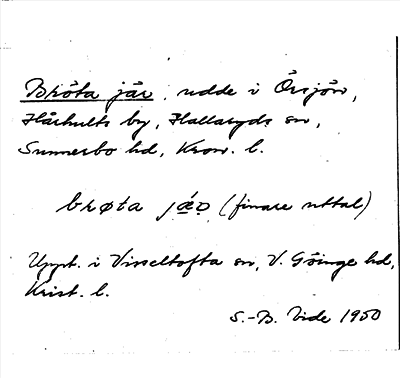 Bröta jär, udde i Örsjön,
Hårhults by, Hallaryds sn,
Sunnerbo hd, Kron. l.
brøta jæ̣ọ (finare uttal)
Uppt. i Visseltofta sn, V. Göinge hd,
Krist. l.
S.-B. Vide 1950